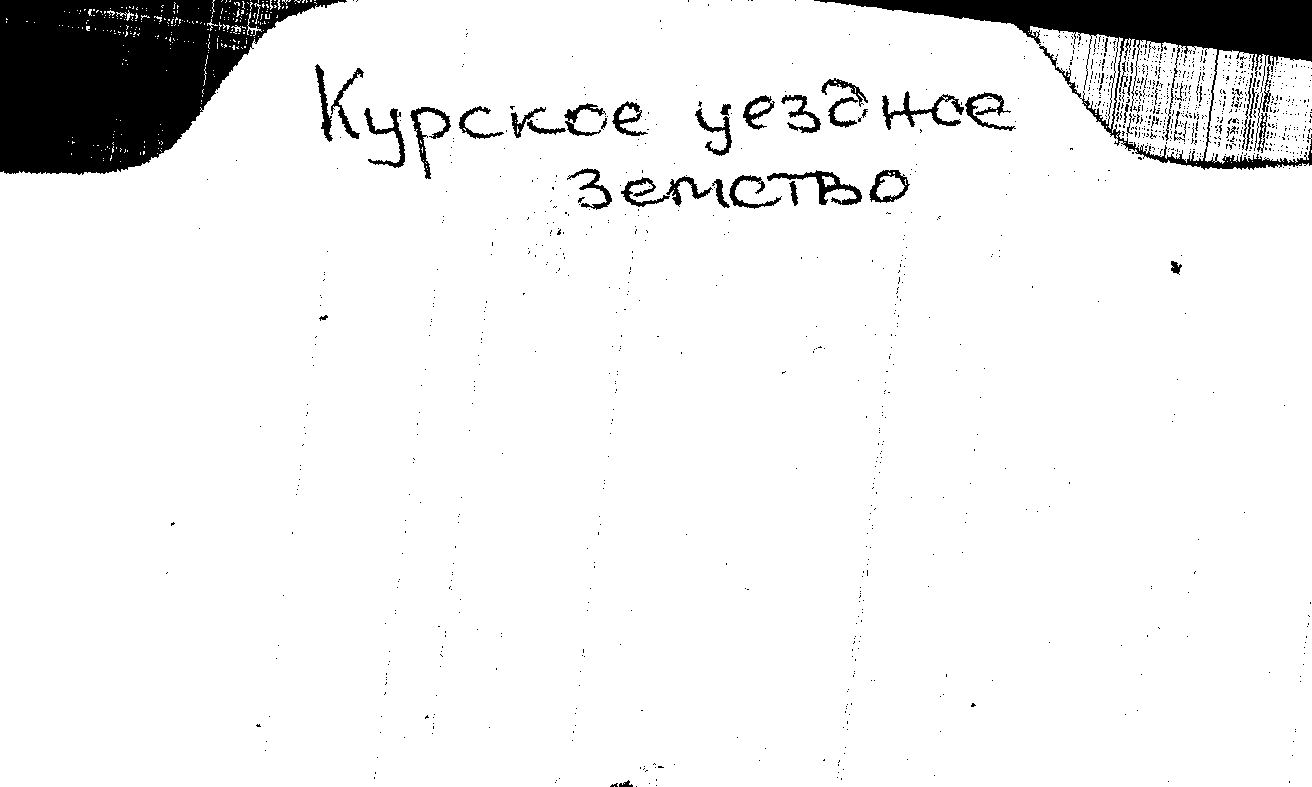 Курское уездное
земство